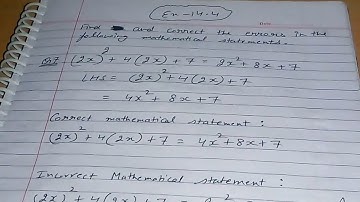 Ex-14.4
Find and correct the errors in the
following mathematical statements.
(2x)² + 4(2x) + 7 = 2x² + 8x + 7
LHS = (2x)² + 4(2x) + 7
= 4x² + 8x + 7
Correct mathematical statement :
(2x)² + 4(2x) + 7 = 4x² + 8x + 7
Incorrect Mathematical statement :